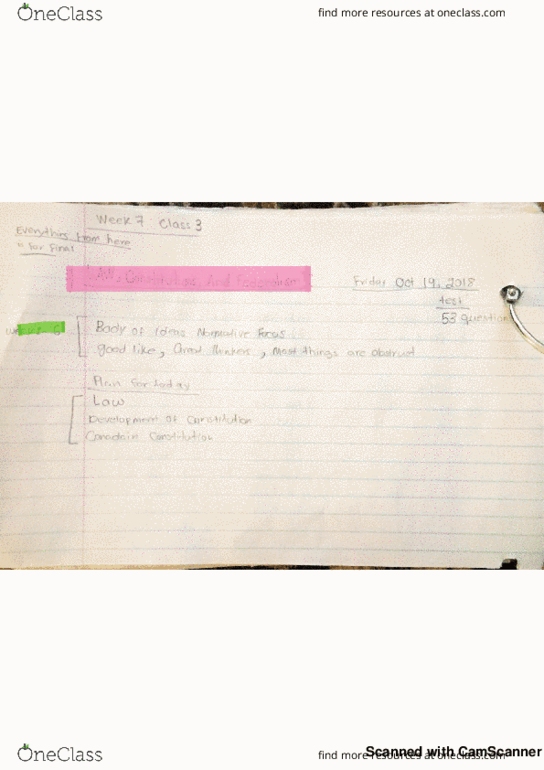 OneClass find more resources at oneclass.com
Week 7 Class 3
Everything from here
is for final
Law, Constitution, And Federalism
Friday Oct 19, 2018
test
53 question
Body of Ideas Normative Focus
good like, Great thinkers, Most things are abstract
Plan for today
Law
Development of Constitution
Canadain Constitution
OneClass find more resources at oneclass.com
Scanned with CamScanner